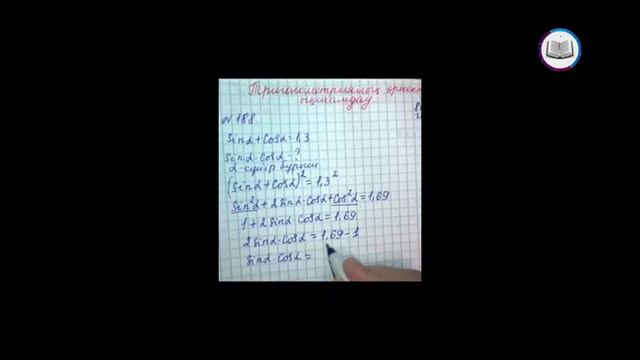 Тригонометриялық өрнек
ықшамдау
№188.
Sinα+Cosα=1,3
Sinα·Cosα-?
α-сүйір бұрыш
(Sinα+Cosα)²=1,3²
Sin²α+2Sinα·Cosα+Cos²α=1,69
1+2Sinα·Cosα=1,69
2Sinα·Cosα=1,69-1
Sinα·Cosα=